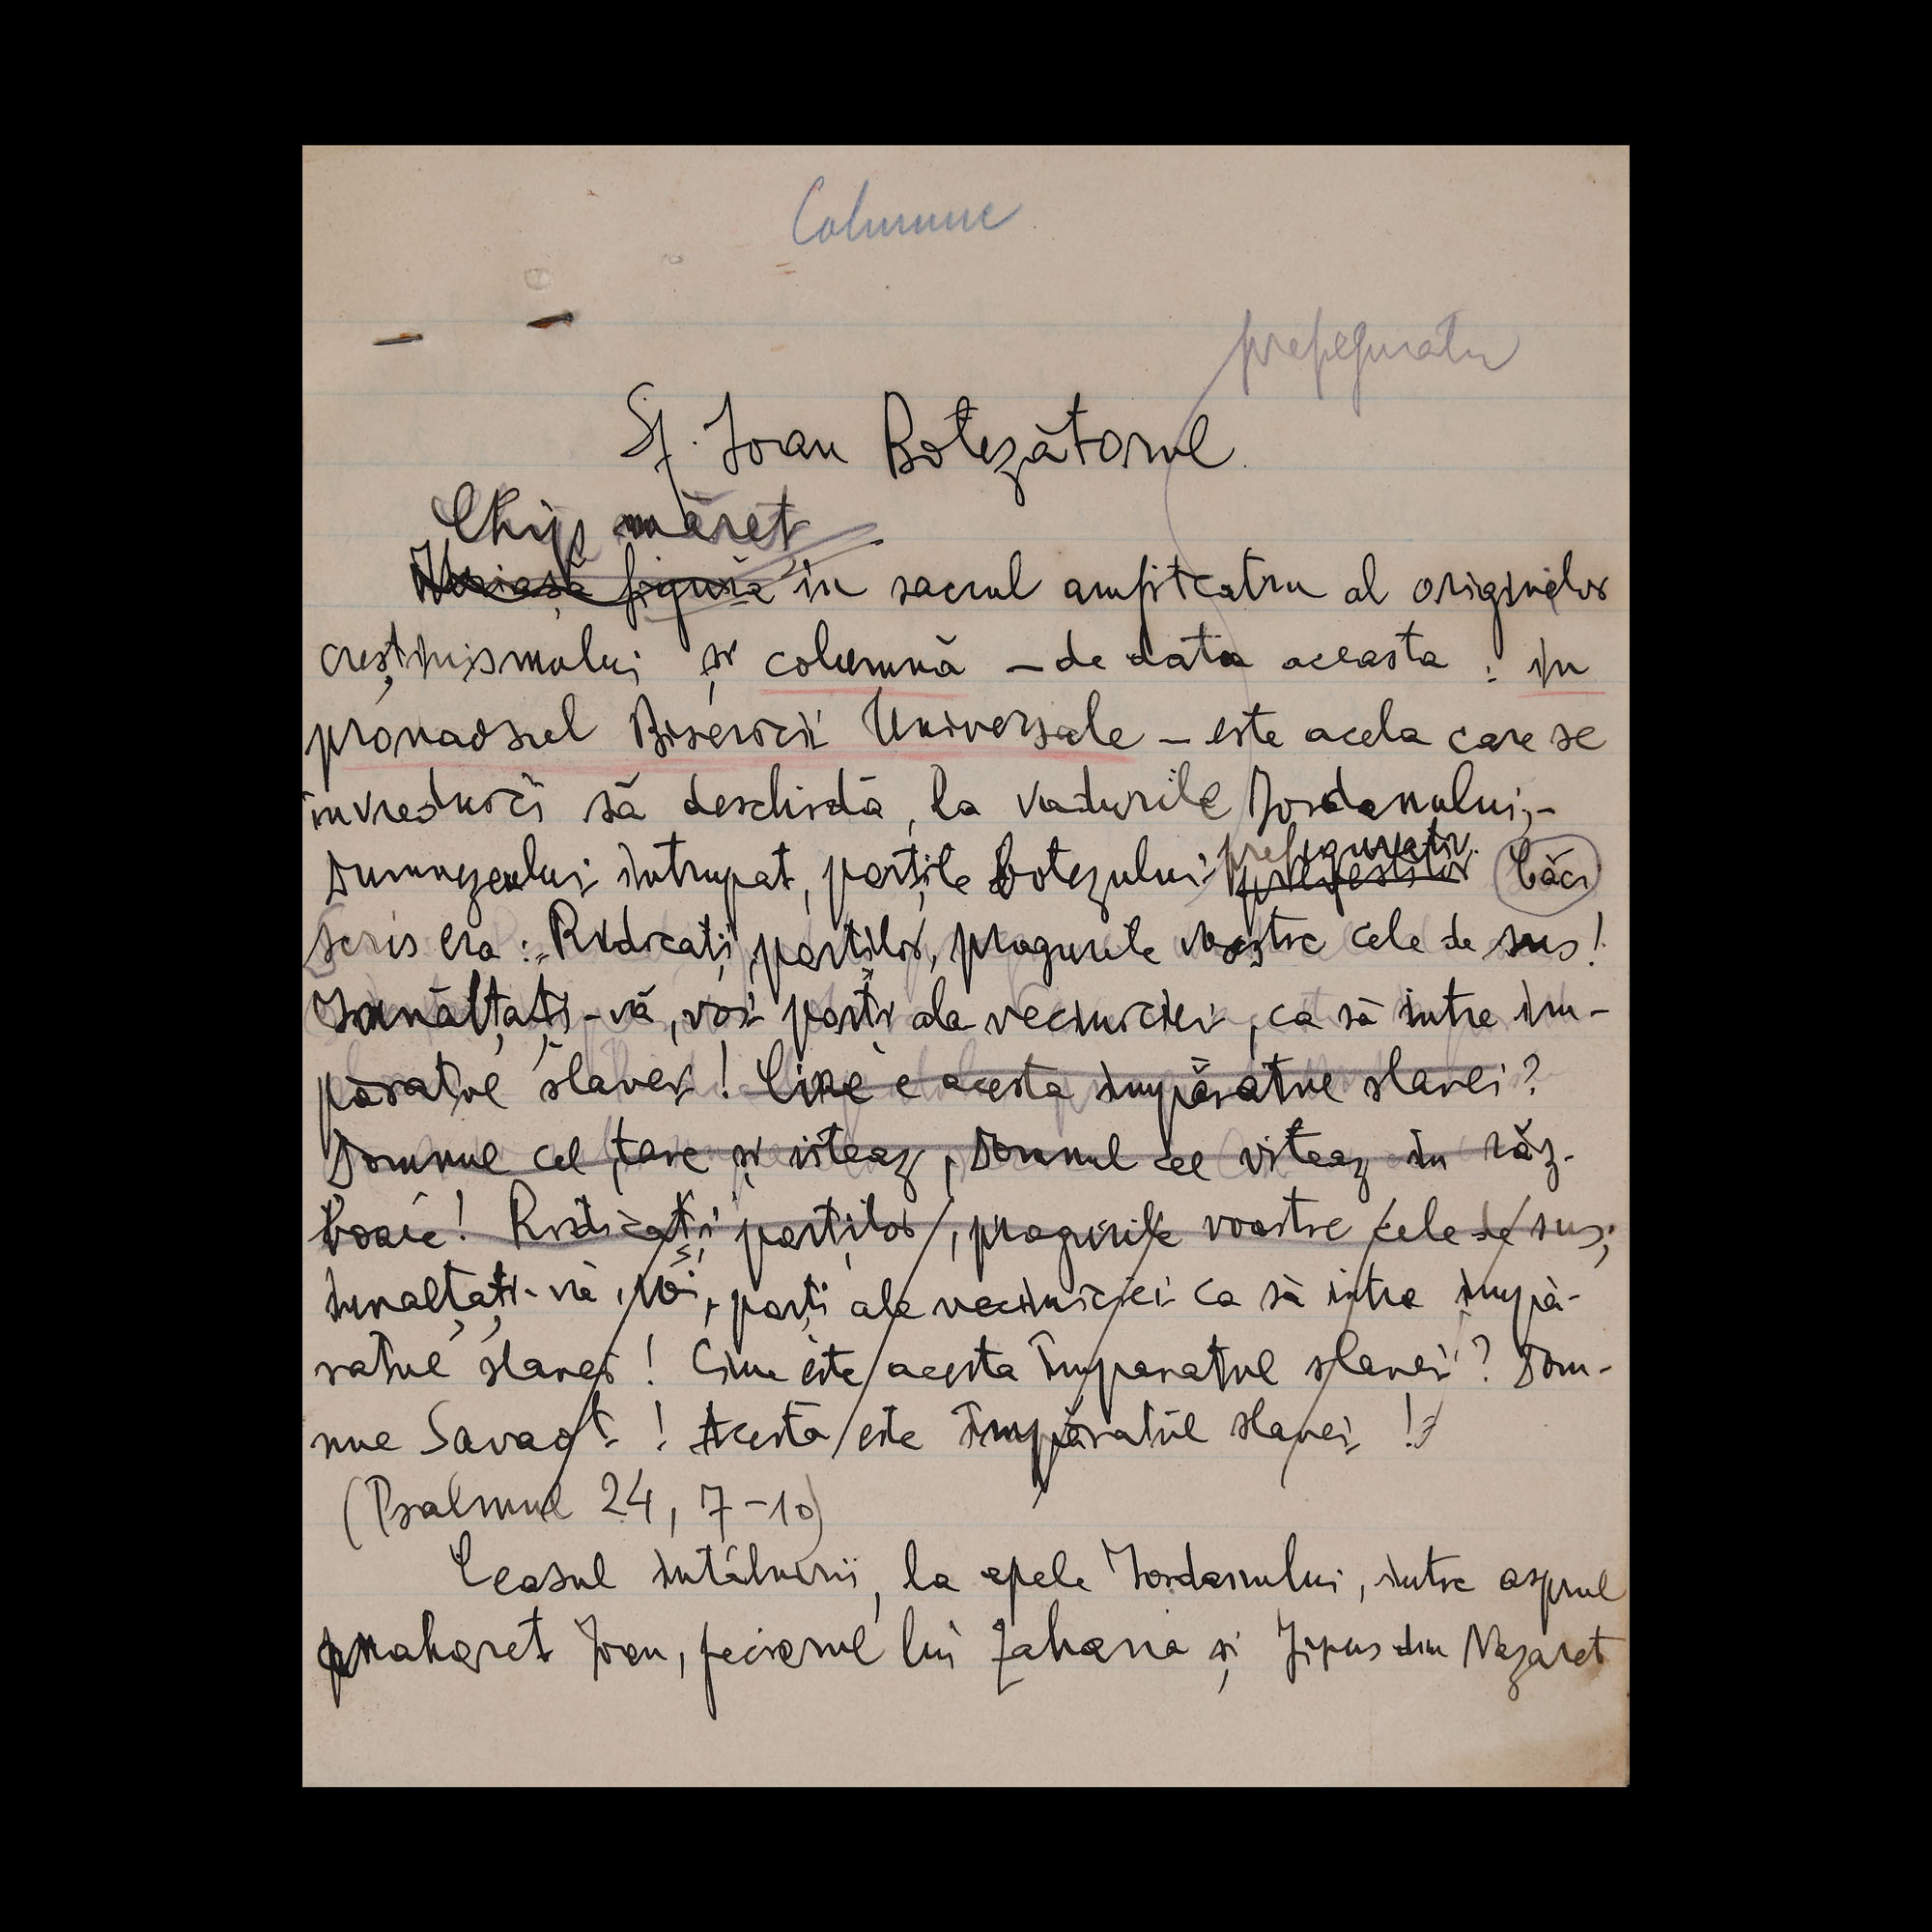 Columne
prefigurativ
Sf. Ioan Botezătorul
Chip măreț
în sacrul amfiteatru al originelor
creștinismului și columnă – de data aceasta : în
pronaosul Bisericii Universale – este acela care se
învrednici să deschidă, la vadurile Iordanului,–
Dumnezeului întrupat, porțile botezului prefigurativ. Căci
scris era : „Ridicați, porților, pragurile voastre cele de sus!
Înnălțați-vă, voi porți ale veciniciei, ca să intre îm-
păratul slavei ! Cine e acesta împăratul slavei ?
Domnul cel tare și viteaz, Domnul cel viteaz în răz-
boaie ! Ridicați porților, pragurile voastre cele de sus;
înnălțați-vă, voi, porți ale veciniciei ca să intre împă-
ratul slavei ! Cine este acesta Împaratul slavei ? Dom-
nul Savaot ! Acesta este Împăratul slavei !"
(Psalmul 24, 7–10)
Ceasul întâlnirii, la apele Iordanului, între asprul
anahoret Ioan, feciorul lui Zaharia și Iisus din Nazaret